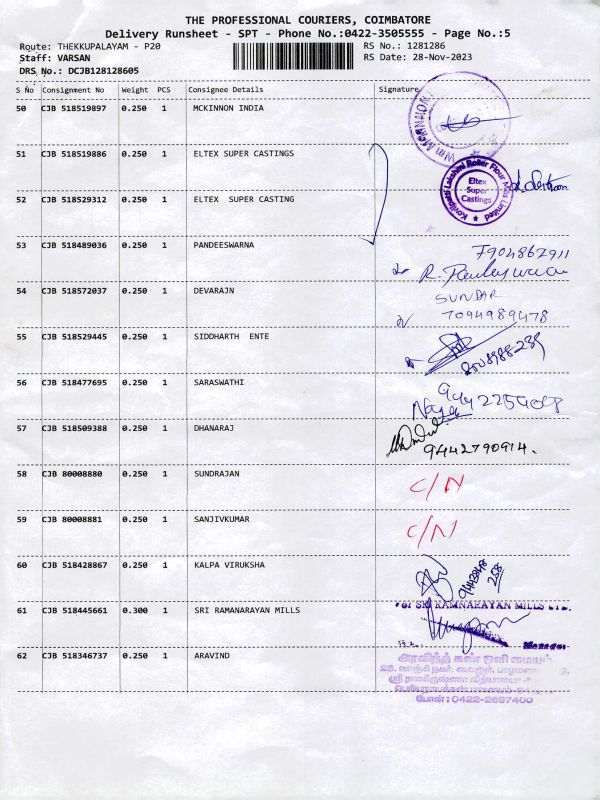 THE PROFESSIONAL COURIERS, COIMBATORE
Delivery Runsheet - SPT - Phone No.:0422-3505555 - Page No.:5
Route: THEKKUPALAYAM - P20
RS No.: 1281286
Staff: VARSAN
RS Date: 28-Nov-2023
DRS No.: DCJB128128605
S No Consignment No Weight PCS Consignee Details Signature
50 CJB 518519897 0.250 1 MCKINNON INDIA
51 CJB 518519886 0.250 1 ELTEX SUPER CASTINGS
Kovilpatti Lakshmi Roller Flour Mills Limited
Eltex
Super
Castings
52 CJB 518529312 0.250 1 ELTEX SUPER CASTING
53 CJB 518489036 0.250 1 PANDEESWARNA
7904862911
54 CJB 518572037 0.250 1 DEVARAJN
SUNDAR
7094989478
55 CJB 518529445 0.250 1 SIDDHARTH ENTE
56 CJB 518477695 0.250 1 SARASWATHI
57 CJB 518509388 0.250 1 DHANARAJ
9442790914.
58 CJB 80008880 0.250 1 SUNDRAJAN C/N
59 CJB 80008881 0.250 1 SANJIVKUMAR C/N
60 CJB 518428867 0.250 1 KALPA VIRUKSHA
61 CJB 518445661 0.300 1 SRI RAMANARAYAN MILLS
For SRI RAMNARAYAN MILLS LTD.
Manager
62 CJB 518346737 0.250 1 ARAVIND
அரவிந்த் கண் ஒளி மையம்
போன் : 0422-2697400